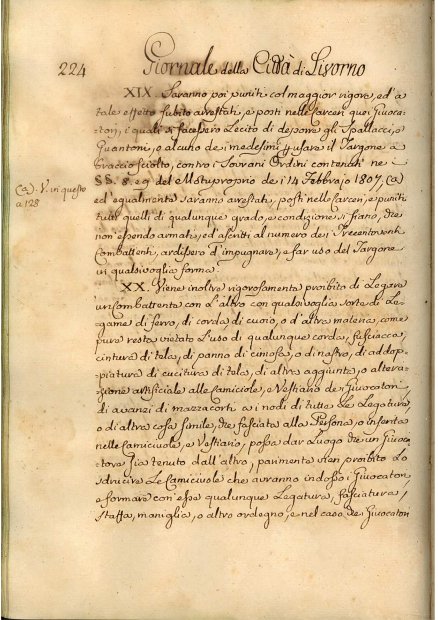 224 Giornale della Città di Livorno
XIX. Saranno poi puniti col maggior vigore, ed a
tale effetto subito arrestati, e posti nelle Carceri quei Giuoca-
tori, i quali si facessero Lecito di deporre gli Spallacci, o
Guantoni, o alcuno de medesimi, usare il Targone a
Braccio sciolto, contro i Sovrani Ordini contenuti ne
SS. 8. e 9. del Motuproprio de i 14 Febbrajo 1807, (a)
(a). V. in questo
a 128
ed egualmente saranno arrestati, posti nelle Carceri, e puniti
tutti quelli di qualunque grado, e condizione si siano, che
non essendo armati, ed ascritti al numero dei Trecento venti
Combattenti, ardissero d'impugnare, e far uso del Targone
in qualsivoglia forma.
XX. Viene inoltre rigorosamente proibito di Legare
un Combattente con L'altro con qualsivoglia sorta di Le-
game di ferro, di corda, di cuoio, o d'altra materia, come
pure resta vietato L'uso di qualunque corda, fusciacca,
cintura di tela, di panno di cimosa, o di nastro, di addop-
piatura di cucitura di tela, di altra aggiunta, o altera-
zione artificiale alle Camiciole, e Vestiario de Giuocatori,
di avanzi di mazzacorti a i nodi di tutte Le Legature,
o di altra cosa simile, che fasciata alla Persona, o inserita
nelle Camiciuole, e Vestiario, possa dar Luogo che un Giuoca-
tore sia tenuto dall'altro, parimente vien proibito Lo
sdrucire Le Camiciuole che avranno indosso i Giuocatori,
e formare con essa qualunque Legatura, fasciatura,
staffa, maniglia, o altro ordegno, e nel caso che Giuocatori